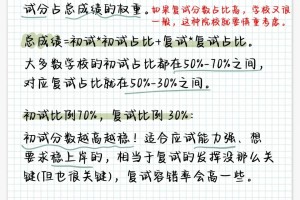 试分占总成绩的权重。如果复试分数占比高，学校又很一般，这种院校就要慎重考虑。
总成绩=初试*初试占比+复试*复试占比。
大多数学校的初试占比都在50%-70%之间，
对应复试占比就在50%-30%之间。
初试比例70%，复试比例 30%：
初试分数越高越稳！适合应试能力强、想
要求稳上岸的，相当于复试的发挥没那么关
键(但也很关键)，复试容错率会高一些。